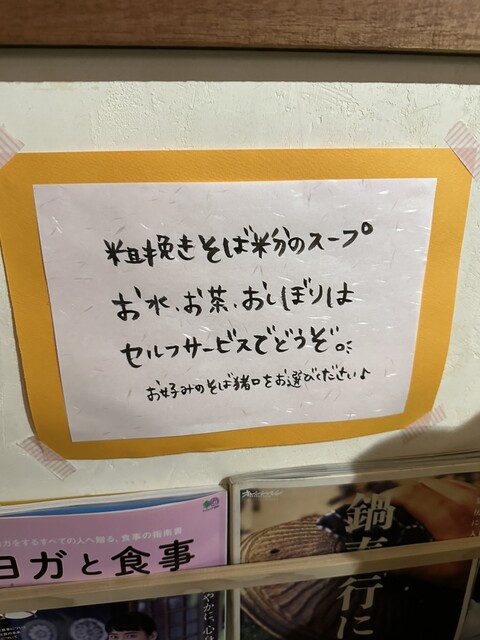 粗挽きそば粉のスープ
お水、お茶、おしぼりは
セルフサービスでどうぞ。
お好みのそば猪口をお選びください♪
ヨガをするすべての人へ贈る、食事の指南書
ヨガと食事
鍋奉行に
やかに、心を